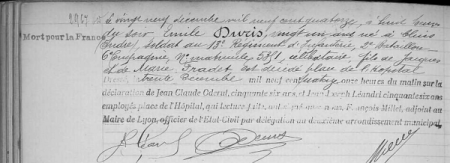 Mort pour la France
vingt neuf décembre mil neuf cent quatorze, à
du soir Emile Duris, vingt un ans né à
(Indre), soldat au 13e Régiment d'Infanterie, 2e Bataillon
6e Compagnie, No matricule 5351, célibataire fils de Jacques
et de Marie Fradet est décédé place de l'Hôpital
trente Décembre mil neuf cent quatorze onze heures du matin sur la
déclaration de Jean Claude Oderud, cinquante six ans, et Joseph Léandri cinquante six ans
employés place de l'Hôpital, qui lecture faite, ont signé avec nous François Millet, adjoint au
Maire de Lyon, officier de l'Etat-Civil par délégation au deuxième arrondissement municipal.